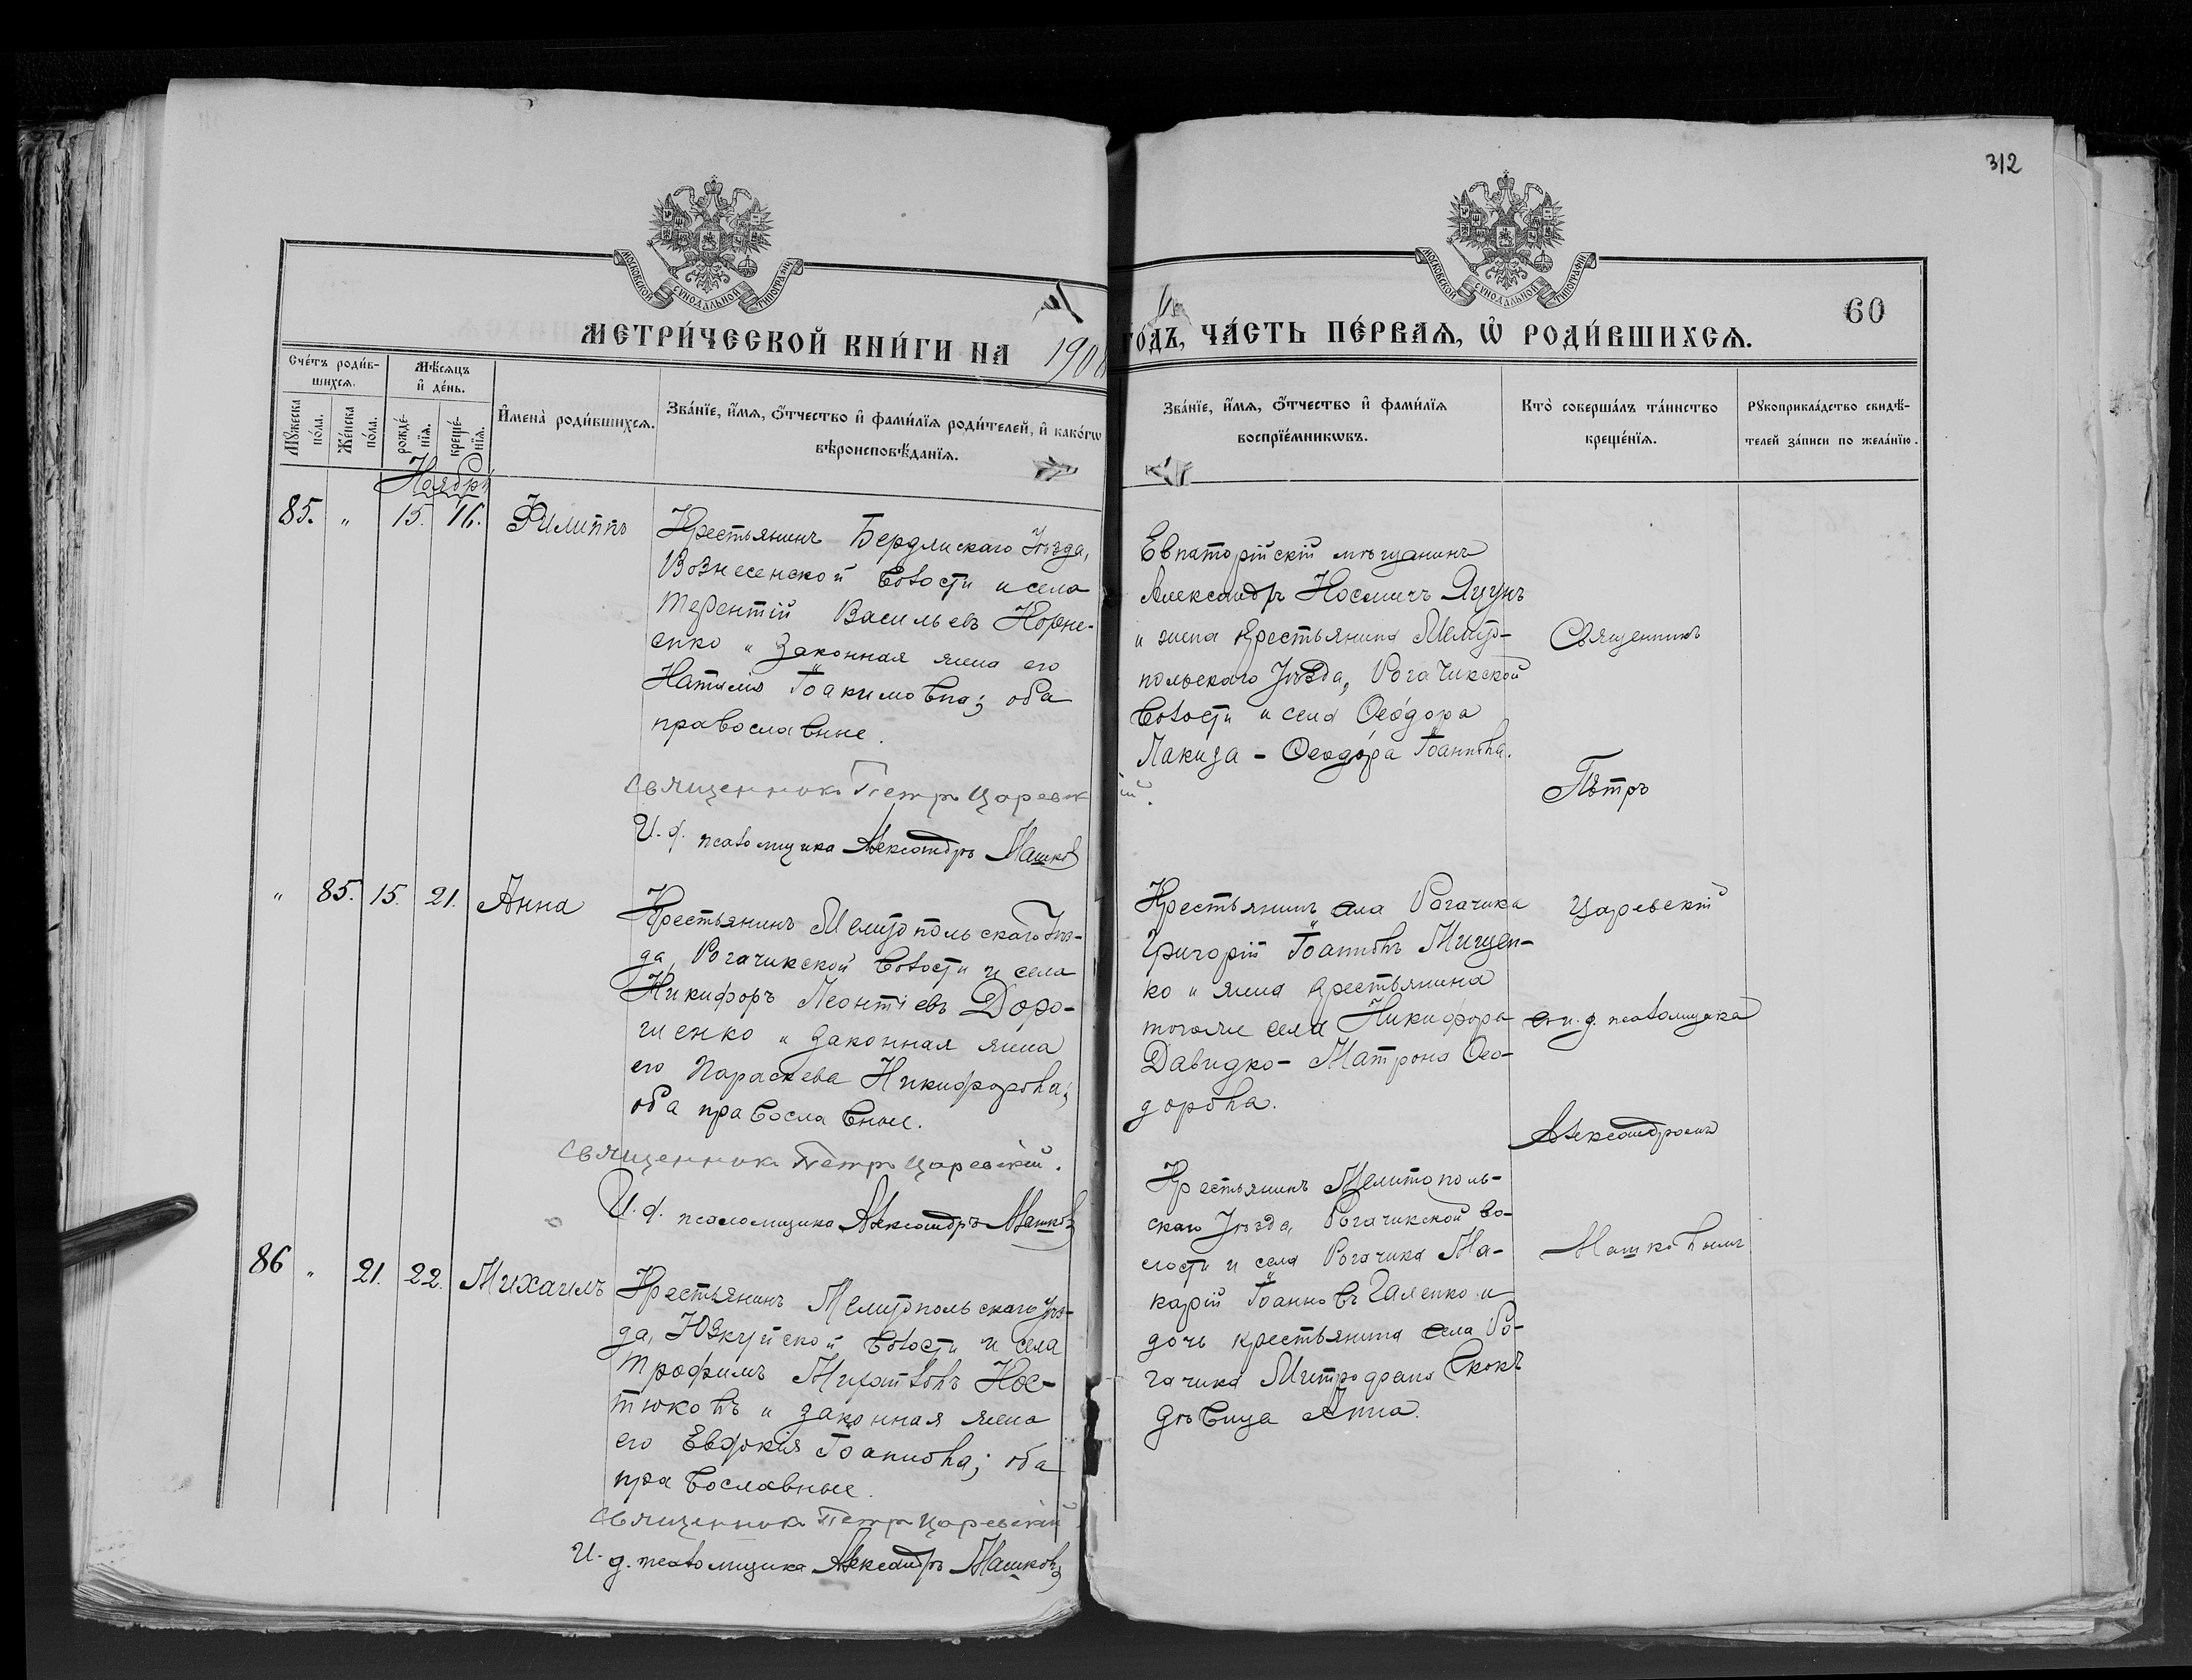 312
МОСКОВСКОЙ СѴНОДАЛЬНОЙ ТИПОГРАФІИ
МОСКОВСКОЙ СѴНОДАЛЬНОЙ ТИПОГРАФІИ
60
МЕТРИ́ЧЕСКОЙ КНИ́ГИ НА 1908
ГО́ДЪ, ЧА́СТЬ ПЕ́РВАѦ, Ѡ҆ РОДИ́ВШИХСѦ.
Сче́тъ роди́в-
шихсѧ.
Мѣ́сѧцъ
и҆ де́нь.
Мꙋ́жеска
по́ла.
Же́нска
по́ла.
рожде́-
нїѧ.
креще́-
нїѧ.
И҆мена̀ роди́вшихсѧ.
Зва́нїе, и҆́мѧ, ѻ҆́тчество и҆ фами́лїѧ роди́телей, и҆ како́гѡ
вѣроисповѣ́данїѧ.
Зва́нїе, и҆́мѧ, ѻ҆́тчество и҆ фами́лїѧ
воспрїе́мникѡвъ.
Кто̀ соверша́лъ та́инство
креще́нїѧ.
Рꙋкоприкла́дство свидѣ́-
телей за́писи по жела́нїю.
Ноябрь
85. " 15. 16. Филиппъ
Крестьянинъ Бердянскаго Уѣзда,
Вознесенской волости и села
Терентій Васильевъ Корне-
енко и законная жена его
Наталія Іоакимовна; оба
православные.
Священникъ Петръ Царевскій.
И. д. псаломщика Александръ Машковъ
Евпаторійскій мѣщанинъ
Александръ Космичъ Яцунъ
и жена крестьянина Мелито-
польскаго Уѣзда, Рогачикской
волости и села Ѳеодора
Лакиза - Ѳеодора Іоаннова.
Священникъ
Петръ
" 85. 15. 21. Анна
Крестьянинъ Мелитопольскаго Уѣз-
да, Рогачикской волости и села
Никифоръ Леонтіевъ Доро-
шенко и законная жена
его Параскева Никифорова;
оба православные.
Священникъ Петръ Царевскій.
И. д. псаломщика Александръ Машковъ
Крестьянинъ села Рогачика
Григорій Іоанновъ Мищен-
ко и жена крестьянина
того же села Никифора
Давидко - Матрона Ѳео-
дорова.
Царевскій
съ и. д. псаломщика
Александромъ
86 " 21. 22. Михаилъ
Крестьянинъ Мелитопольскаго Уѣз-
да, Юзкуйской волости и села
Трофимъ Михаиловъ Кос-
тюковъ и законная жена
его Евдокія Іоаннова; оба
православные.
Священникъ Петръ Царевскій
И. д. псаломщика Александръ Машковъ
Крестьянинъ Мелитополь-
скаго Уѣзда, Рогачикской во-
лости и села Рогачика Ма-
карій Іоанновъ Галенко и
дочь крестьянина села Ро-
гачика Митрофана Скокъ
дѣвица Анна.
Машковымъ